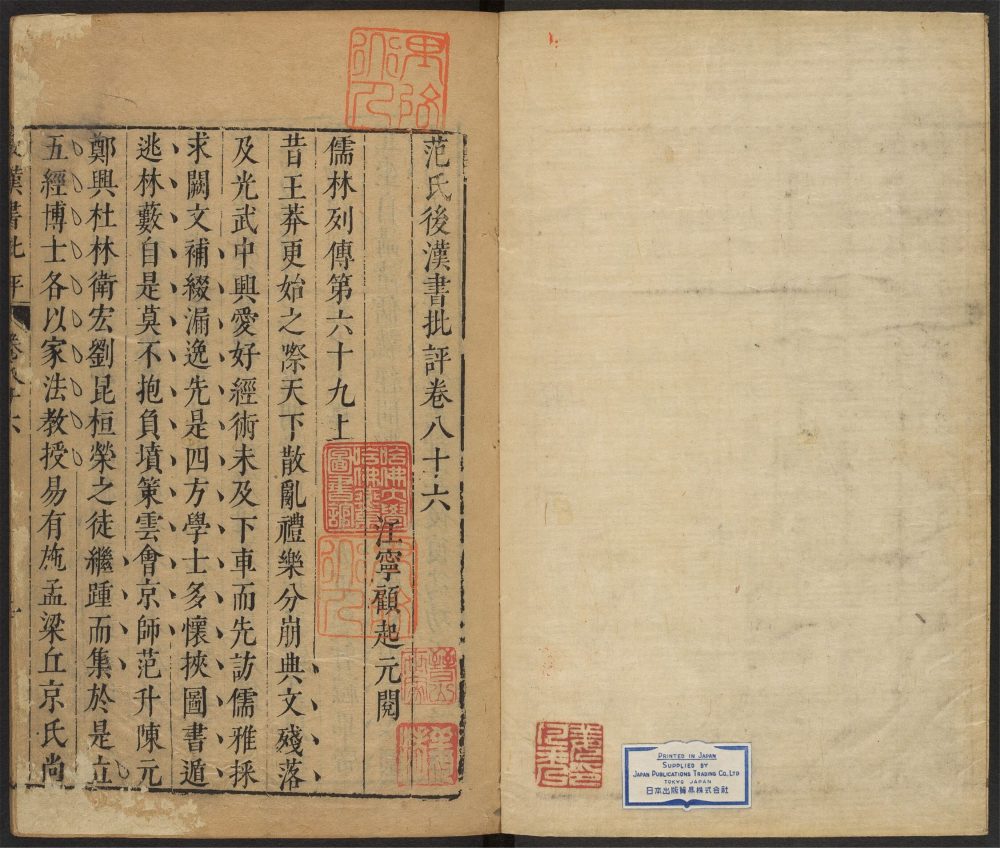 范氏後漢書批評卷八十六
江寧顧起元閱
儒林列傳第六十九上
昔王莽更始之際天下散亂禮樂分崩典文殘落
及光武中興愛好經術未及下車而先訪儒雅採
求闕文補綴漏逸先是四方學士多懷挾圖書遁
逃林藪自是莫不抱負墳策雲會京師范升陳元
鄭興杜林衛宏劉昆桓榮之徒繼踵而集於是立
五經博士各以家法教授易有施孟梁丘京氏尚
漢書批評
哈佛大學哈佛燕京圖書館
PRINTED IN JAPAN
SUPPLIED BY
JAPAN PUBLICATIONS TRADING CO., LTD
TOKYO JAPAN
日本出版貿易株式会社